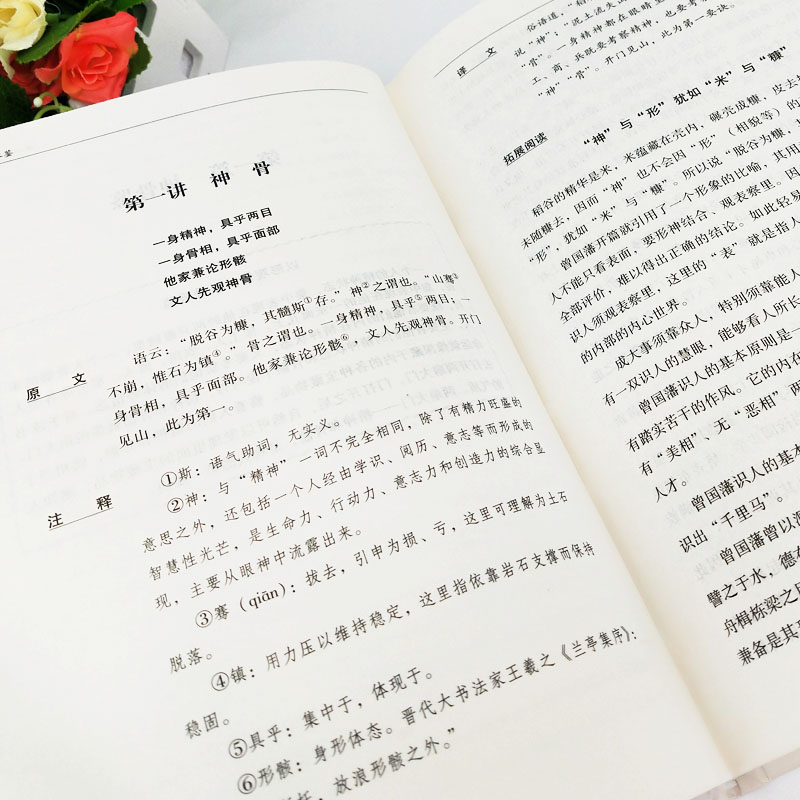 鉴
第一讲 神 骨
一身精神，具乎两目
一身骨相，具乎面部
他家兼论形骸
文人先观神骨
原 文
语云：“脱谷为糠，其髓斯①存。”神②之谓也。“山骞③
不崩，惟石为镇④。”骨之谓也。一身精神，具乎⑤两目；一
身骨相，具乎面部。他家兼论形骸⑥，文人先观神骨。开门
见山，此为第一。
注 释
①斯：语气助词，无实义。
②神：与“精神”一词不完全相同，除了有精力旺盛的
意思之外，还包括一个人经由学识、阅历、意志等而形成的
智慧性光芒，是生命力、行动力、意志力和创造力的综合显
现，主要从眼神中流露出来。
③骞（qiān）：拔去，引申为损、亏，这里可理解为土石
脱落。
④镇：用力压以维持稳定，这里指依靠岩石支撑而保持
稳固。
⑤具乎：集中于，体现于。
⑥形骸：身形体态。晋代大书法家王羲之《兰亭集序》：
托，放浪形骸之外。”
译 文
俗语道，“稻
说“神”；“泥土流失山
“骨”。一身精神都在眼睛
工、商、兵既要考察精神，也要考
“神”“骨”。开门见山，此为第一要诀。
拓展阅读
“神”与“形”犹如“米”与“糠”
稻谷的精华是米，米蕴藏在壳内，碾壳成糠，皮去
未随糠去，因而“神”也不会因“形”（相貌等）的
“形”，犹如“米”与“糠”。所以说“脱谷为糠，其
曾国藩开篇就引用了一个形象的比喻，其用
人不能只看表面，要形神结合、观表察里。因
全部评价，难以得出正确的结论。如此轻易
识人须观表察里，这里的“表”就是指人
的内部的内心世界。
成大事须靠众人，特别须靠能人
有一双识人的慧眼，能够看人所长
曾国藩识人的基本原则是一
有踏实苦干的作风。它的内在
有“美相”、无“恶相”两
人才。
曾国藩识人的基本
识出“千里马”。
曾国藩曾以
譬之于水，德在
舟楫栋梁之
兼备是其